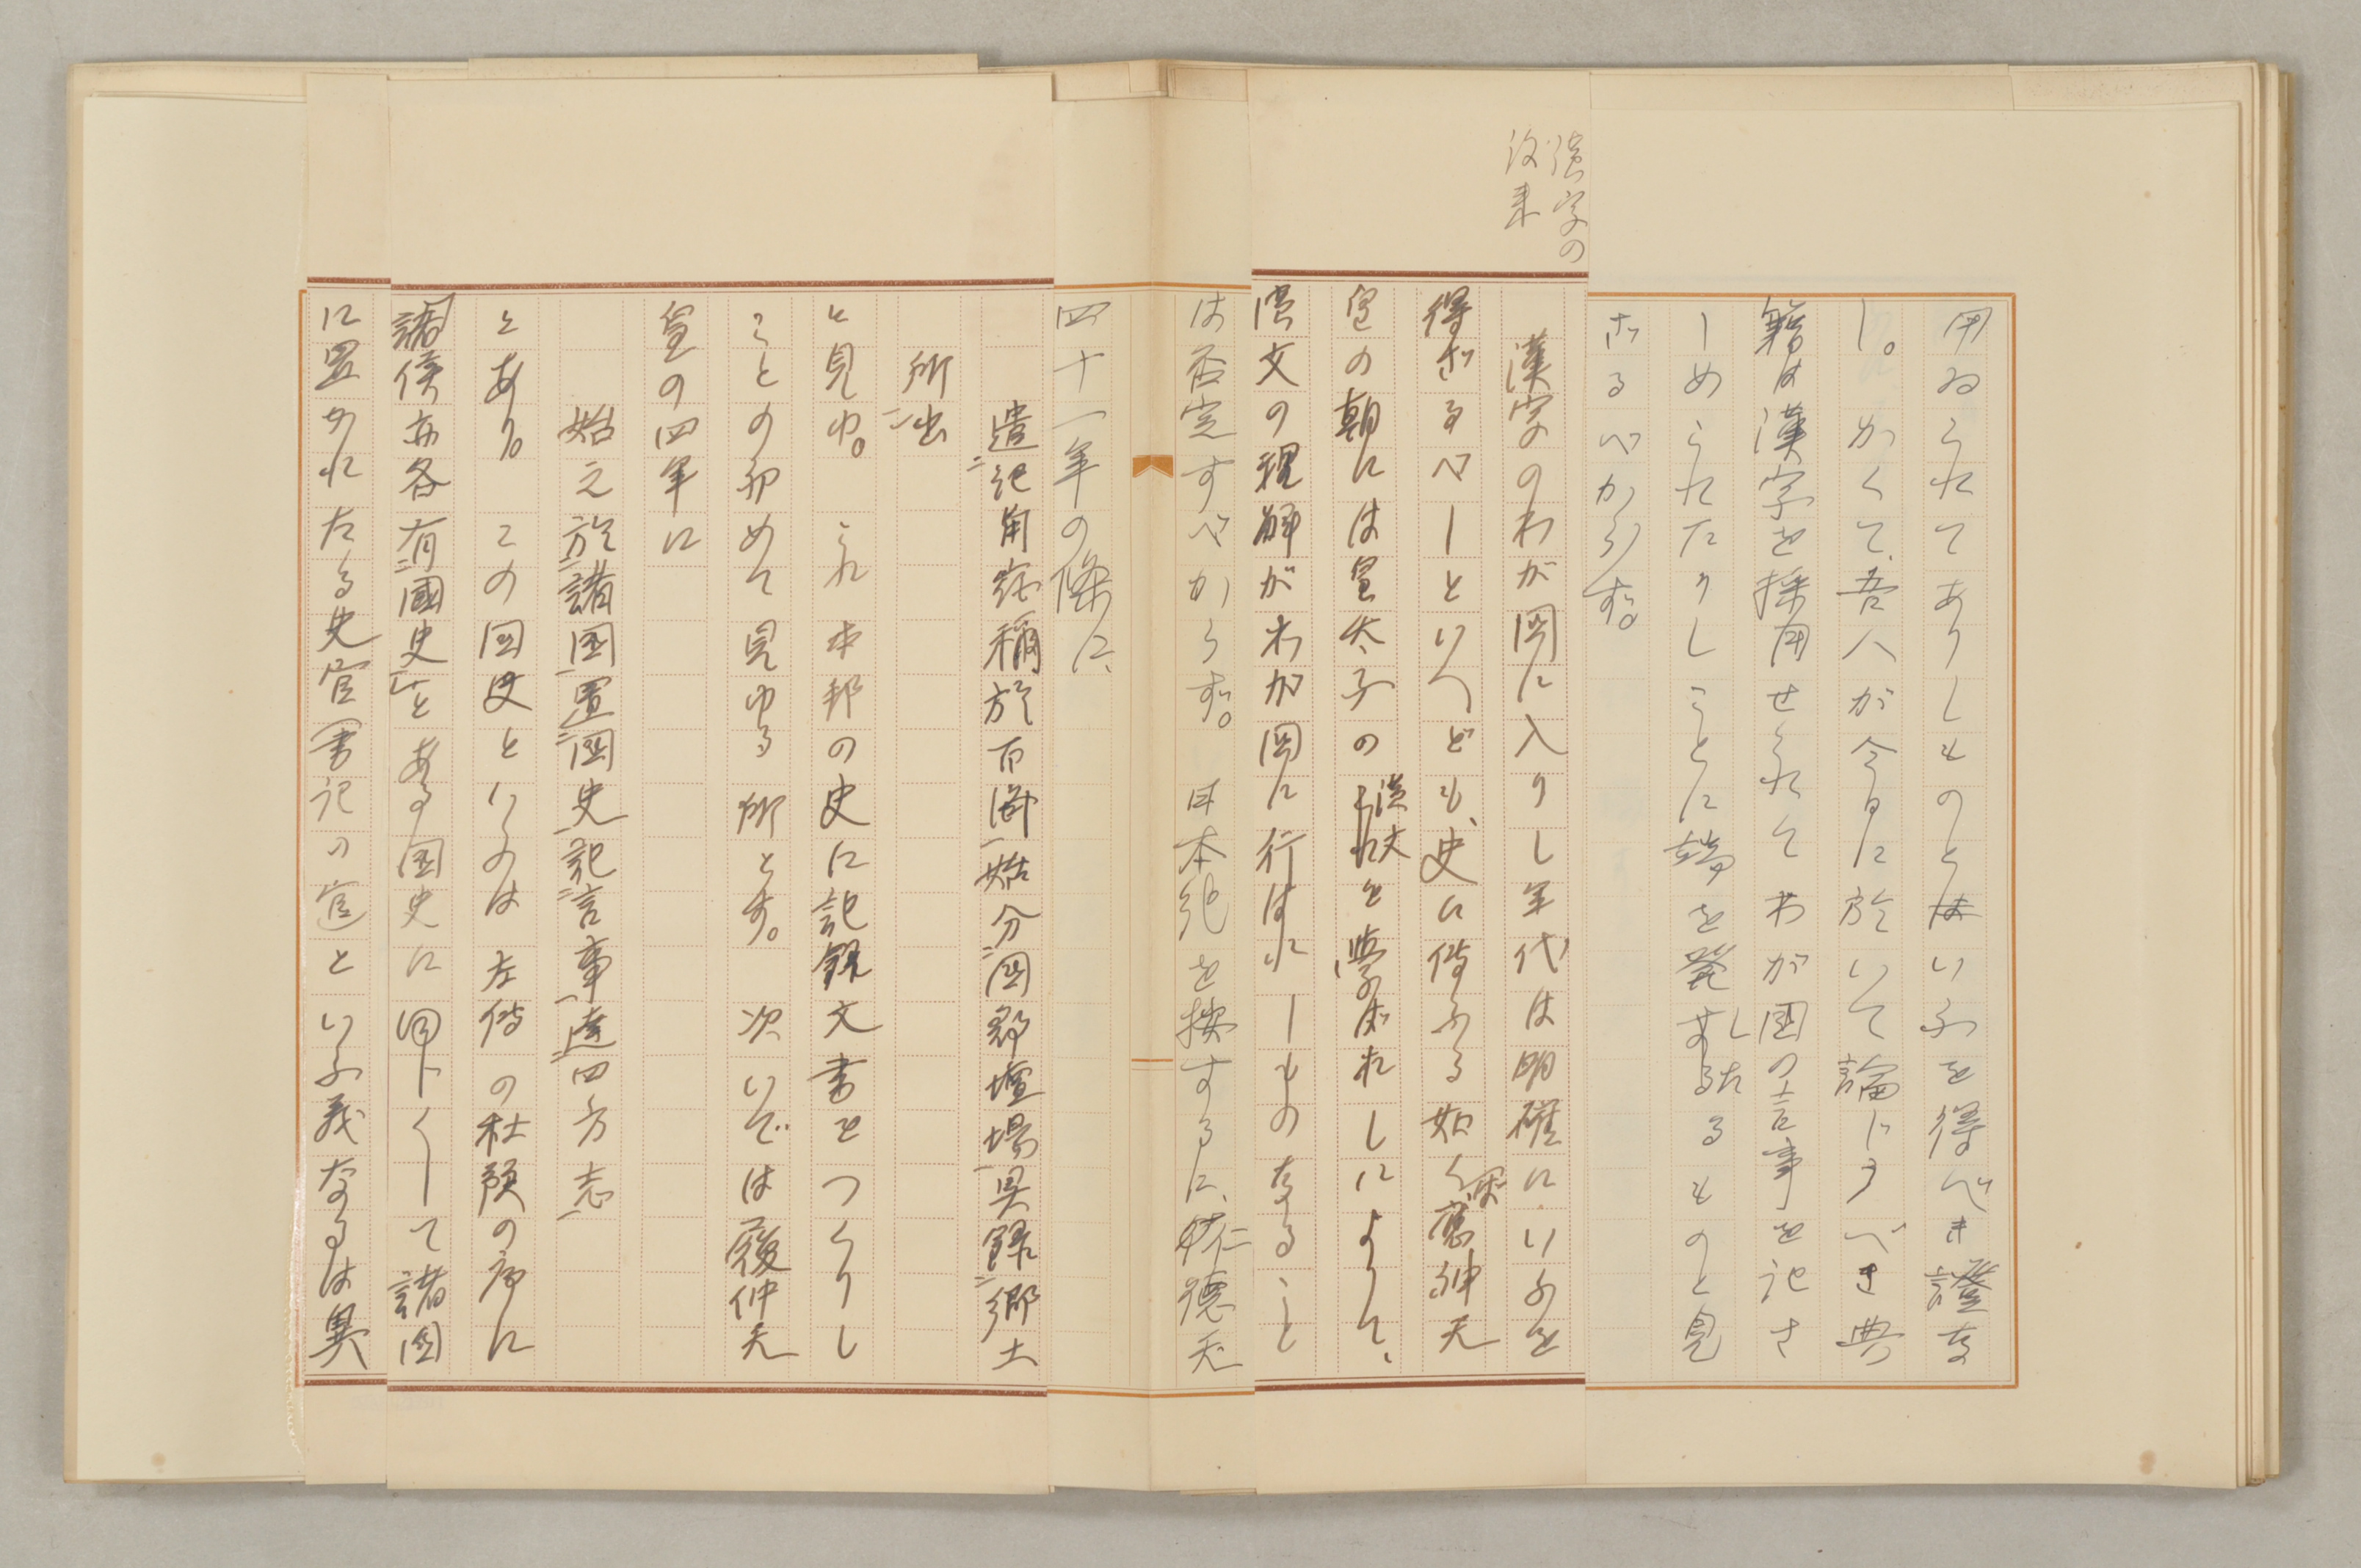 用ゐられてありしものとはいふを得べき證な
し。かくて、吾人が今日に於いて論ずべき典
籍は漢字を採用せられてわが国の言事を記さ
しめられたりしことに端を発したるものと見
ざるべからず。
漢字の
渡来
漢字のわが国に入りし年代は明確にいふを
得ざるべしといへども、史に傳ふる如く應神天
皇の朝には皇太子の漢文を學ばれしによりて、
漢文の理解がわが国に行はれしものなること
は否定すべからず。日本紀を按するに、仁德天
四十一年の條に、
遣紀角宿祢於百済始分国郡壃場具録郷土
所出
と見ゆ。これ本邦の史に記録文書をつくりし
ことの初めて見ゆる所とす。次いでは履仲天
皇の四年に
始之於諸国置国史記言事達四方志
とあり。この国史といふのは左傳の杜預の序に
諸侯亦各有國史とある国史に同じくして諸国
に置かれたる史官書記の官といふ義なるは異